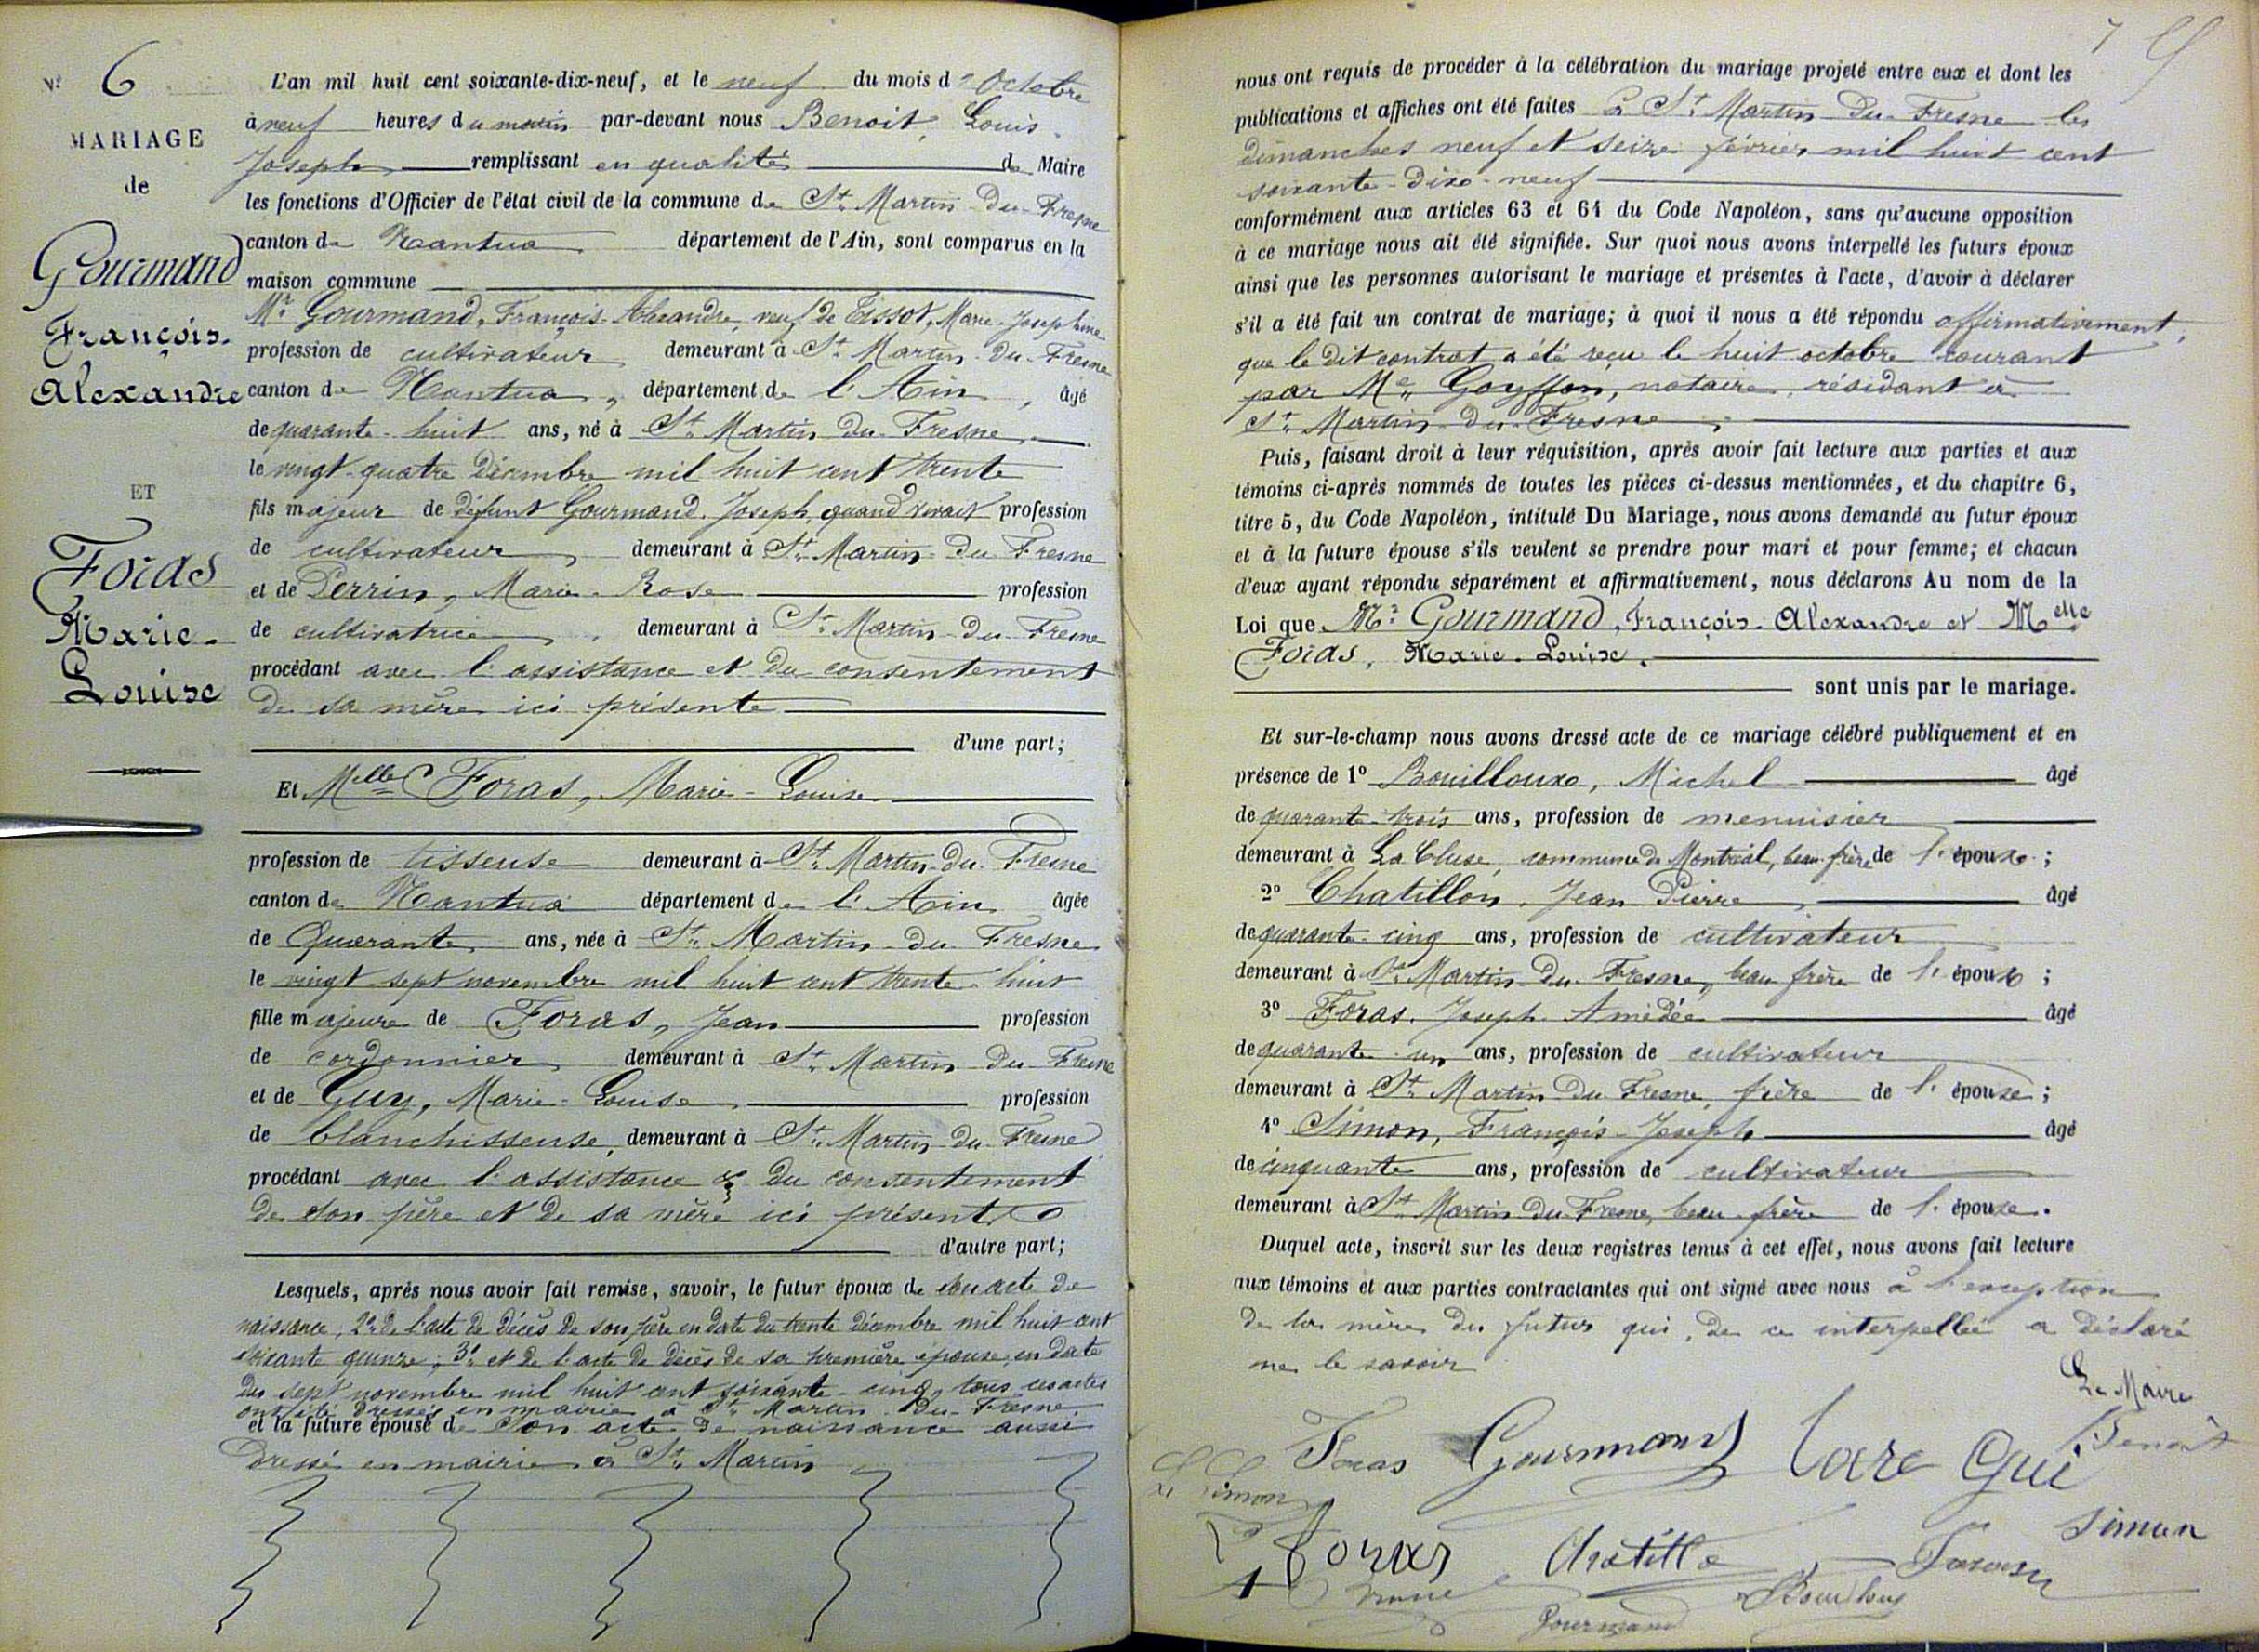 N° 6
MARIAGE
de
Gourmand
François-
Alexandre
ET
Foras
Marie-
Louise
L'an mil huit cent soixante-dix-neuf, et le neuf du mois d'Octobre
à neuf heures du matin par-devant nous Benoit, Louis
Joseph remplissant en qualité de Maire
les fonctions d'Officier de l'état civil de la commune de St. Martin-Du-Fresne
canton de Nantua département de l'Ain, sont comparus en la
maison commune
Mr Gourmand, François-Alexandre, veuf de Tissot, Marie-Josephine
profession de cultivateur demeurant à St. Martin-du-Fresne
canton de Nantua, département de l'Ain, âgé
de quarante-huit ans, né à St. Martin-du-Fresne,
le vingt-quatre Décembre mil huit cent trente
fils majeur de défunt Gourmand, Joseph, quand vivait profession
de cultivateur, demeurant à St. Martin-du-Fresne
et de Perrin, Marie-Rose profession
de cultivatrice, demeurant à St. Martin-du-Fresne
procédant avec l'assistance et du consentement
de sa mère ici présente
d'une part;
Et Melle Foras, Marie-Louise
profession de tisseuse demeurant à St. Martin-du-Fresne
canton de Nantua département de l'Ain âgée
de Quarante ans, née à St. Martin-du-Fresne
le vingt-sept novembre mil huit cent trente-huit
fille majeure de Foras, Jean profession
de cordonnier, demeurant à St. Martin-Du-Fresne
et de Guy, Marie-Louise profession
de blanchisseuse, demeurant à St. Martin-du-Fresne
procédant avec l'assistance & du consentement
de son père et de sa mère ici présents
d'autre part;
Lesquels, après nous avoir fait remise, savoir, le futur époux de son acte de
naissance, 2° de l'acte de décès de son père en date du trente décembre mil huit cent
soixante quinze; 3° et de l'acte de décès de sa première épouse, en date
du sept novembre mil huit cent soixante-cinq, tous ces actes
ont été dressés en mairie à St. Martin-Du-Fresne
et la future épouse de son acte de naissance aussi
dressé en mairie à St. Martin
7
nous ont requis de procéder à la célébration du mariage projeté entre eux et dont les
publications et affiches ont été faites à St. Martin-Du-Fresne les
dimanches neuf et seize février mil huit cent
soixante-dix-neuf
conformément aux articles 63 et 64 du Code Napoléon, sans qu'aucune opposition
à ce mariage nous ait été signifiée. Sur quoi nous avons interpellé les futurs époux
ainsi que les personnes autorisant le mariage et présentes à l'acte, d'avoir à déclarer
s'il a été fait un contrat de mariage; à quoi il nous a été répondu affirmativement,
que le dit contrat a été reçu le huit octobre courant
par Me Goyffon, notaire, résidant à
St. Martin-du-Fresne;
Puis, faisant droit à leur réquisition, après avoir fait lecture aux parties et aux
témoins ci-après nommés de toutes les pièces ci-dessus mentionnées, et du chapitre 6,
titre 5, du Code Napoléon, intitulé Du Mariage, nous avons demandé au futur époux
et à la future épouse s'ils veulent se prendre pour mari et pour femme; et chacun
d'eux ayant répondu séparément et affirmativement, nous déclarons Au nom de la
Loi que Mr Gourmand, François-Alexandre et Melle
Foras, Marie-Louise,
sont unis par le mariage.
Et sur-le-champ nous avons dressé acte de ce mariage célébré publiquement et en
présence de 1° Bouilloux, Michel âgé
de quarante-trois ans, profession de menuisier
demeurant à La Cluse, commune de Montréal, beau-frère de l'épouse;
2° Chatillon, Jean Pierre âgé
de quarante-cinq ans, profession de cultivateur
demeurant à St. Martin-du-Fresne, beau frère de l'épouse;
3° Foras, Joseph Amédée âgé
de quarante-un ans, profession de cultivateur
demeurant à St. Martin-Du-Fresne, frère de l'épouse;
4° Simon, François-Joseph âgé
de cinquante ans, profession de cultivateur
demeurant à St. Martin-Du-Fresne, beau-frère de l'épouse.
Duquel acte, inscrit sur les deux registres tenus à cet effet, nous avons fait lecture
aux témoins et aux parties contractantes qui ont signé avec nous à l'exception
de la mère du futur qui, de ce interpellée a déclaré
ne le savoir
Le Maire
Benoit
Foras Gourmand Gui
Simon
Simon
Foras Chatillo
Gourmand